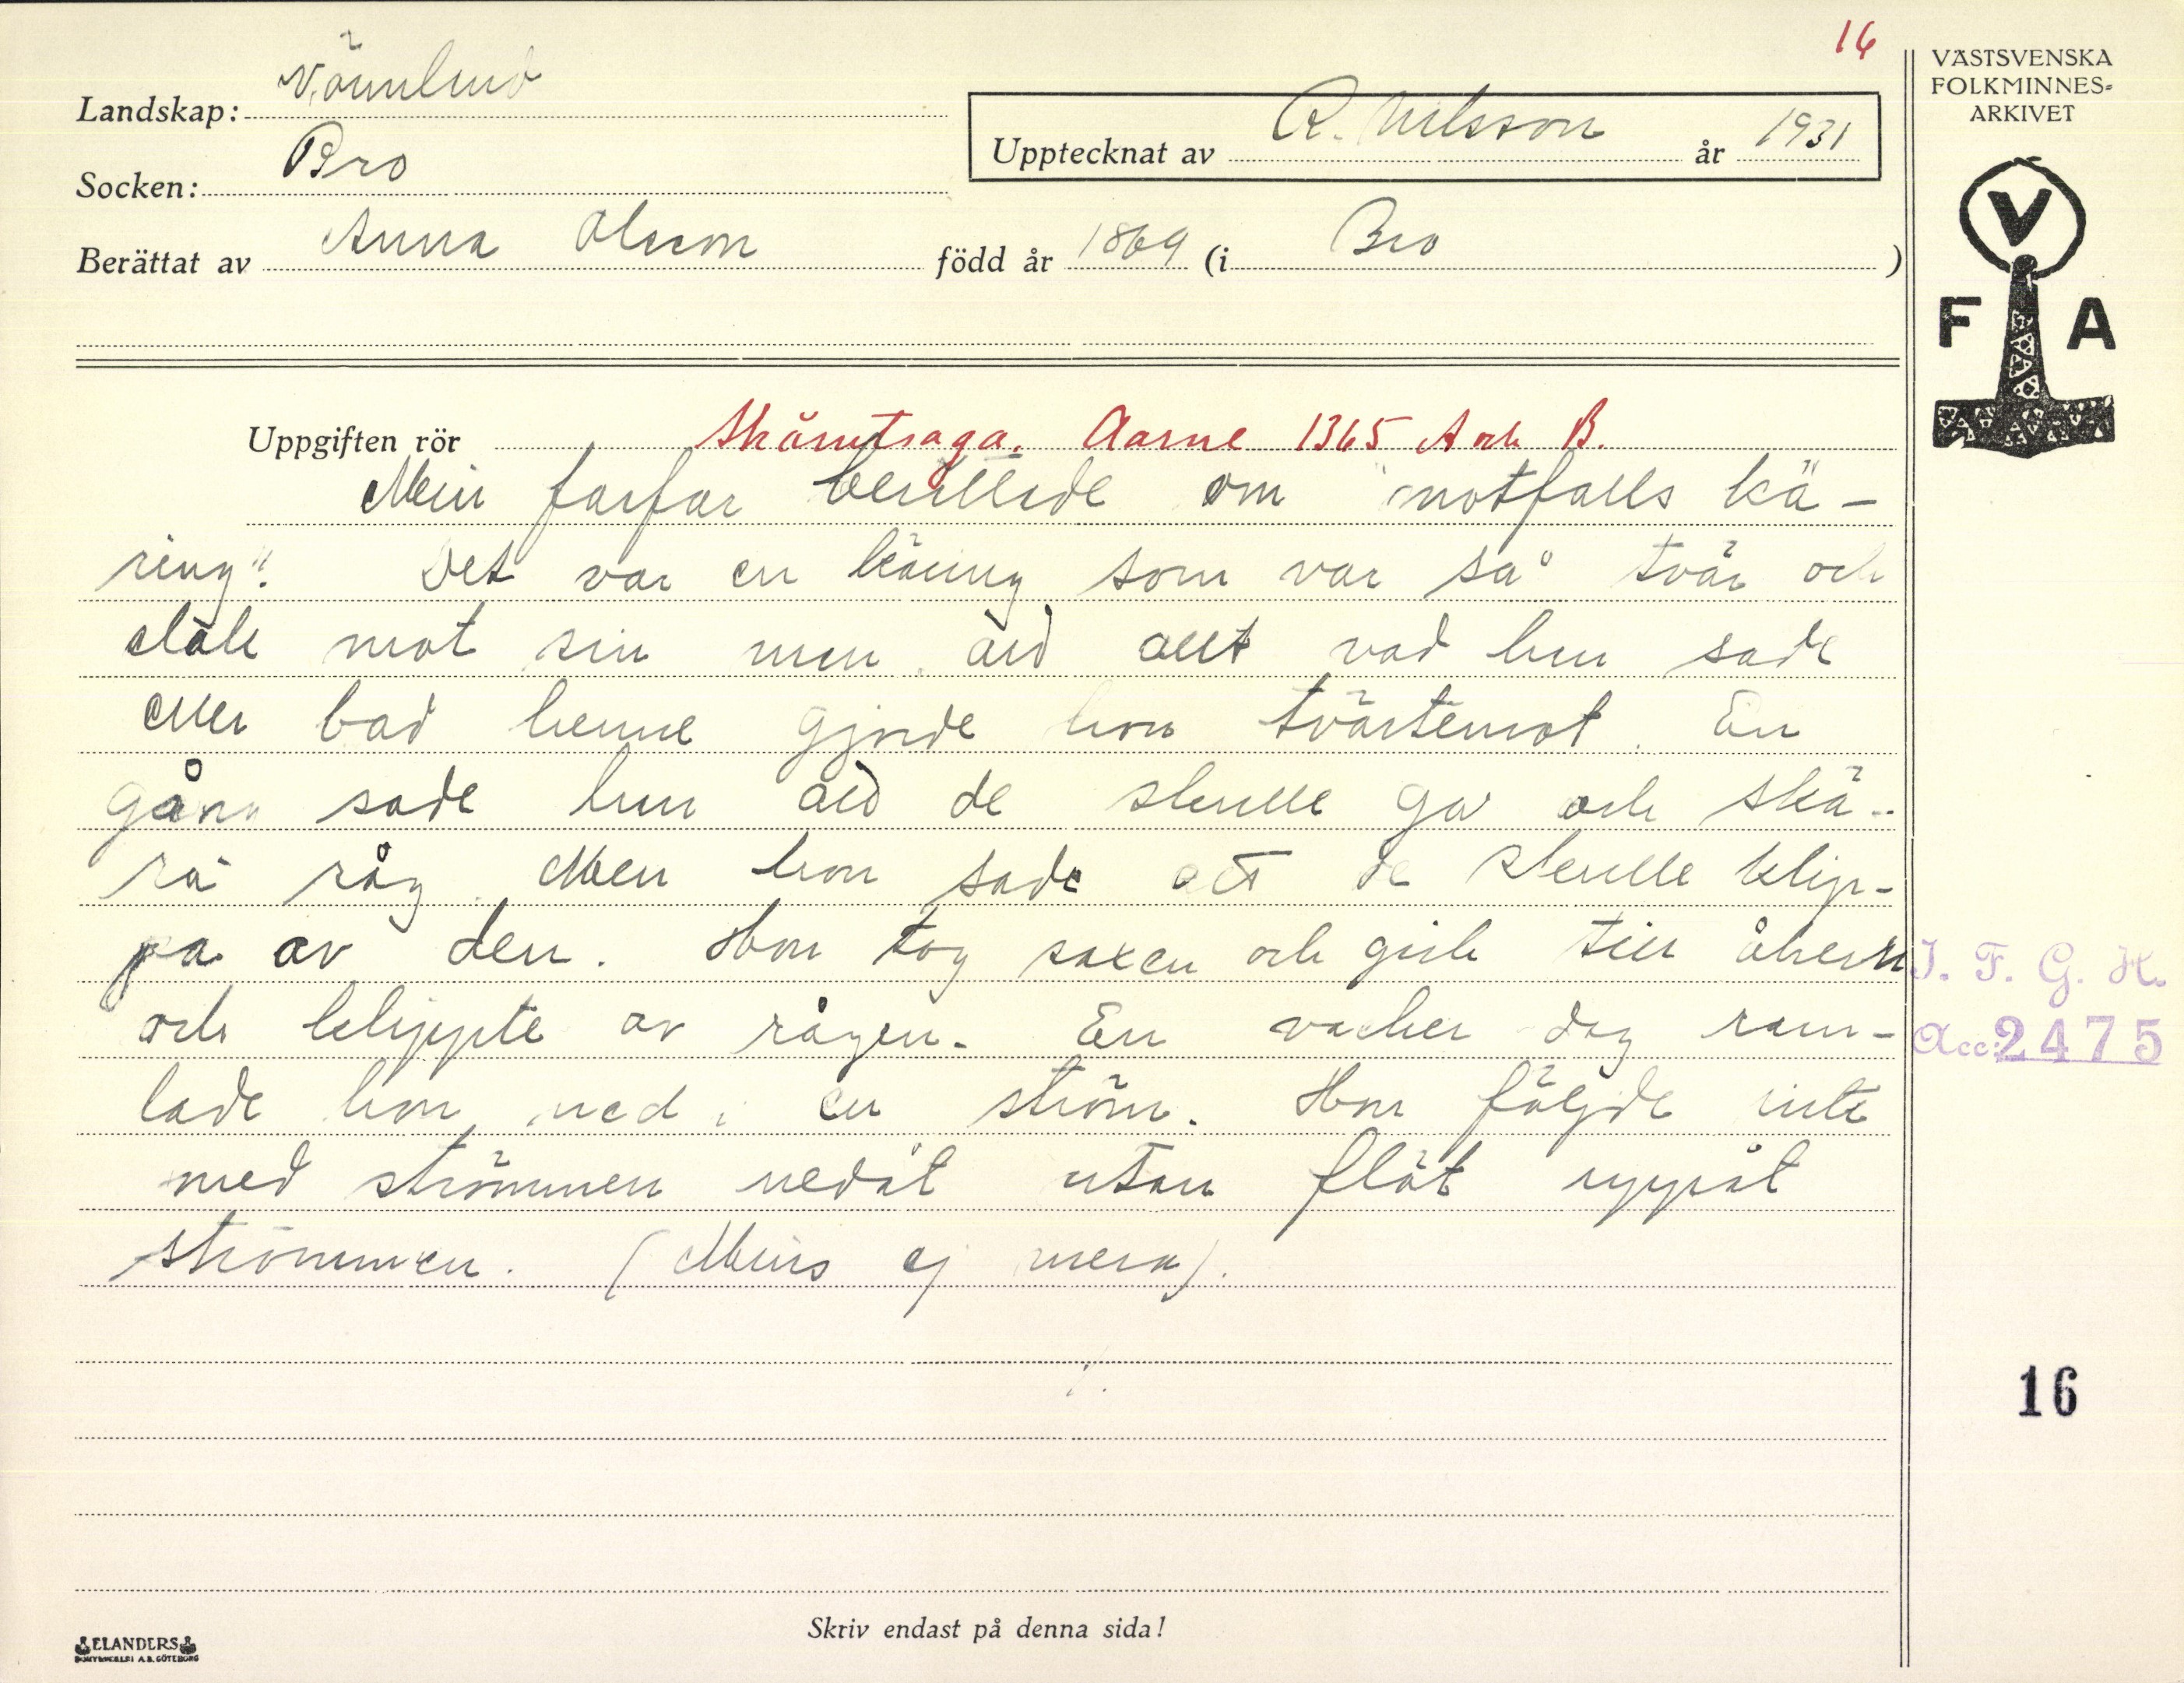 16
Landskap: Värmland
Socken: Bro
Upptecknat av R. Nilsson år 1931
Berättat av Anna Olsson född år 1869 (i Bro)
VÄSTSVENSKA
FOLKMINNES-
ARKIVET
V
F A
Uppgiften rör Skämtsaga. Aarne 1365 A och B.
Min farfar berättade om "motfalls kä-
ring". Det var en käring som var så tvär och
elak mot sin man att allt vad han sade
eller bad henne gjorde hon tvärtemot. En
gång sade han att de skulle gå och skä-
ra råg. Men hon sade att de skulle klip-
pa av den. Hon tog saxen och gick till åkern
och klippte av rågen. En vacker dag ram-
lade hon ned i en ström. Hon följde inte
med strömmen nedåt utan flöt uppåt
strömmen. (Minns ej mera).
I. F. G. H.
Acc: 2475
16
Skriv endast på denna sida!
ELANDERS
BOKTRYCKERI A.B. GÖTEBORG